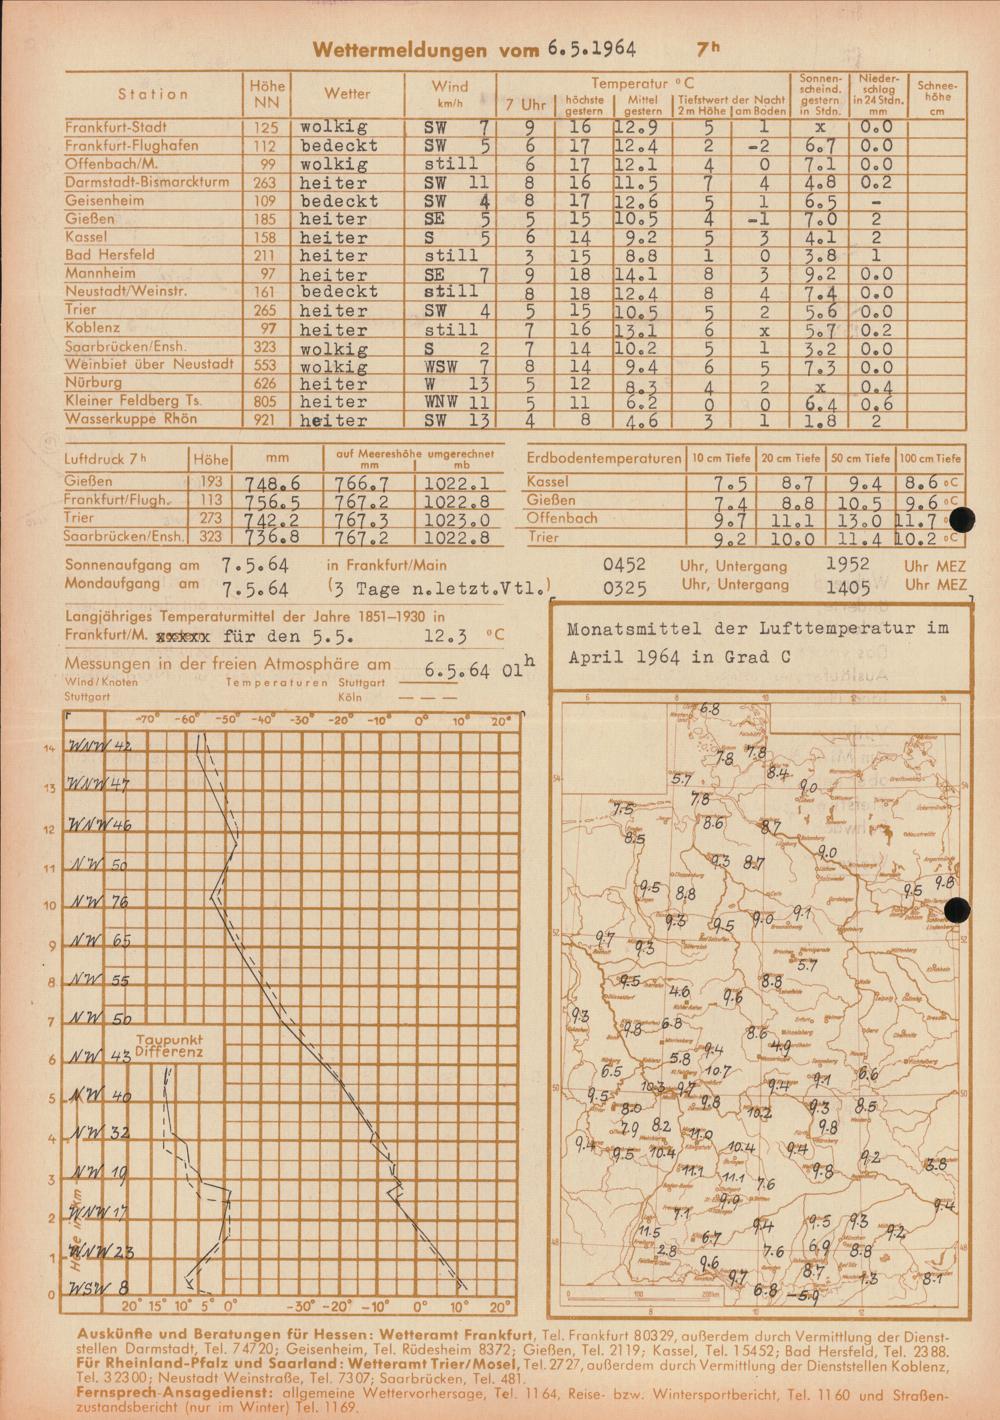 Wettermeldungen vom 6.5.1964 7h
Station Höhe NN Wetter Wind km/h Temperatur °C 7 Uhr höchste gestern Mittel gestern Tiefstwert der Nacht 2 m Höhe am Boden Sonnen-scheind. gestern in Stdn. Nieder-schlag in 24 Stdn. mm Schnee-höhe cm
Frankfurt-Stadt 125 wolkig SW 7 9 16 12.9 5 1 x 0.0
Frankfurt-Flughafen 112 bedeckt SW 5 6 17 12.4 2 -2 6.7 0.0
Offenbach/M. 99 wolkig still 6 17 12.1 4 0 7.1 0.0
Darmstadt-Bismarckturm 263 heiter SW 11 8 16 11.5 7 4 4.8 0.2
Geisenheim 109 bedeckt SW 4 8 17 12.6 5 1 6.5 -
Gießen 185 heiter SE 5 5 15 10.5 4 -1 7.0 2
Kassel 158 heiter S 5 6 14 9.2 5 3 4.1 2
Bad Hersfeld 211 heiter still 3 15 8.8 1 0 3.8 1
Mannheim 97 heiter SE 7 9 18 14.1 8 3 9.2 0.0
Neustadt/Weinstr. 161 bedeckt still 8 18 12.4 8 4 7.4 0.0
Trier 265 heiter SW 4 5 15 10.5 5 2 5.6 0.0
Koblenz 97 heiter still 7 16 13.1 6 x 5.7 0.2
Saarbrücken/Ensh. 323 wolkig S 2 7 14 10.2 5 1 3.2 0.0
Weinbiet über Neustadt 553 wolkig WSW 7 8 14 9.4 6 5 7.3 0.0
Nürburg 626 heiter W 13 5 12 8.3 4 2 x 0.4
Kleiner Feldberg Ts. 805 heiter WNW 11 5 11 6.2 0 0 6.4 0.6
Wasserkuppe Rhön 921 heiter SW 13 4 8 4.6 3 1 1.8 2
Luftdruck 7h Höhe mm auf Meereshöhe umgerechnet mm mb
Gießen 193 748.6 766.7 1022.1
Frankfurt/Flugh. 113 756.5 767.2 1022.8
Trier 273 742.2 767.3 1023.0
Saarbrücken/Ensh. 323 736.8 767.2 1022.8
Erdbodentemperaturen 10 cm Tiefe 20 cm Tiefe 50 cm Tiefe 100 cm Tiefe
Kassel 7.5 8.7 9.4 8.6 °C
Gießen 7.4 8.8 10.5 9.6 °C
Offenbach 9.7 11.1 13.0 11.7 °
Trier 9.2 10.0 11.4 10.2 °C
Sonnenaufgang am 7.5.64 in Frankfurt/Main 0452 Uhr, Untergang 1952 Uhr MEZ
Mondaufgang am 7.5.64 (3 Tage n.letzt.Vtl.) 0325 Uhr, Untergang 1405 Uhr MEZ
Langjähriges Temperaturmittel der Jahre 1851–1930 in
Frankfurt/M. xxxxx für den 5.5. 12.3 °C
Messungen in der freien Atmosphäre am 6.5.64 01h
Wind/Knoten Temperaturen Stuttgart
Stuttgart Köln
-70° -60° -50° -40° -30° -20° -10° 0° 10° 20°
14 WNW 42
13 WNW 47
12 WNW 46
11 NW 50
10 NW 76
9 NW 65
8 NW 55
7 NW 50
Taupunkt
Differenz
6 NW 43
5 NW 40
4 NW 32
3 NW 19
2 WNW 17
1 WNW 23
0 WSW 8
Höhe in km
20° 15° 10° 5° 0° -30° -20° -10° 0° 10° 20°
Monatsmittel der Lufttemperatur im
April 1964 in Grad C
6 8 10 12 14
6.8
7.8 7.8
5.7 8.4
9.0
7.5 7.8
8.5 8.6 8.7
9.3 8.7 9.0
9.5 8.8 9.5 9.8
9.3 9.5 9.0 9.1
9.7 9.3
5.7
9.5 4.6 9.6 8.8
9.3 9.8 6.8 8.6
4.9
5.8 9.4
6.5 10.7 9.1 6.6
10.3 9.7 9.4
9.5 8.0 9.8 10.2 9.3 8.5
7.9 8.2 11.0 9.8
9.4 9.5 10.4 10.4 9.4 9.2
11.1 11.1 7.6 9.8 3.8
9.9
7.1 9.4 9.5 9.3 9.2 9.4
11.5 6.7
2.8 7.6 6.9 8.8
9.6 8.7
9.7 1.3 8.1
6.8 -5.9
0 100 200km
8 10 12
Auskünfte und Beratungen für Hessen: Wetteramt Frankfurt, Tel. Frankfurt 80329, außerdem durch Vermittlung der Dienst-
stellen Darmstadt, Tel. 74720; Geisenheim, Tel. Rüdesheim 8372; Gießen, Tel. 2119; Kassel, Tel. 15452; Bad Hersfeld, Tel. 2388.
Für Rheinland-Pfalz und Saarland: Wetteramt Trier/Mosel, Tel. 2727, außerdem durch Vermittlung der Dienststellen Koblenz,
Tel. 32300; Neustadt Weinstraße, Tel. 7307; Saarbrücken, Tel. 481.
Fernsprech-Ansagedienst: allgemeine Wettervorhersage, Tel. 1164, Reise- bzw. Wintersportbericht, Tel. 1160 und Straßen-
zustandsbericht (nur im Winter) Tel. 1169.